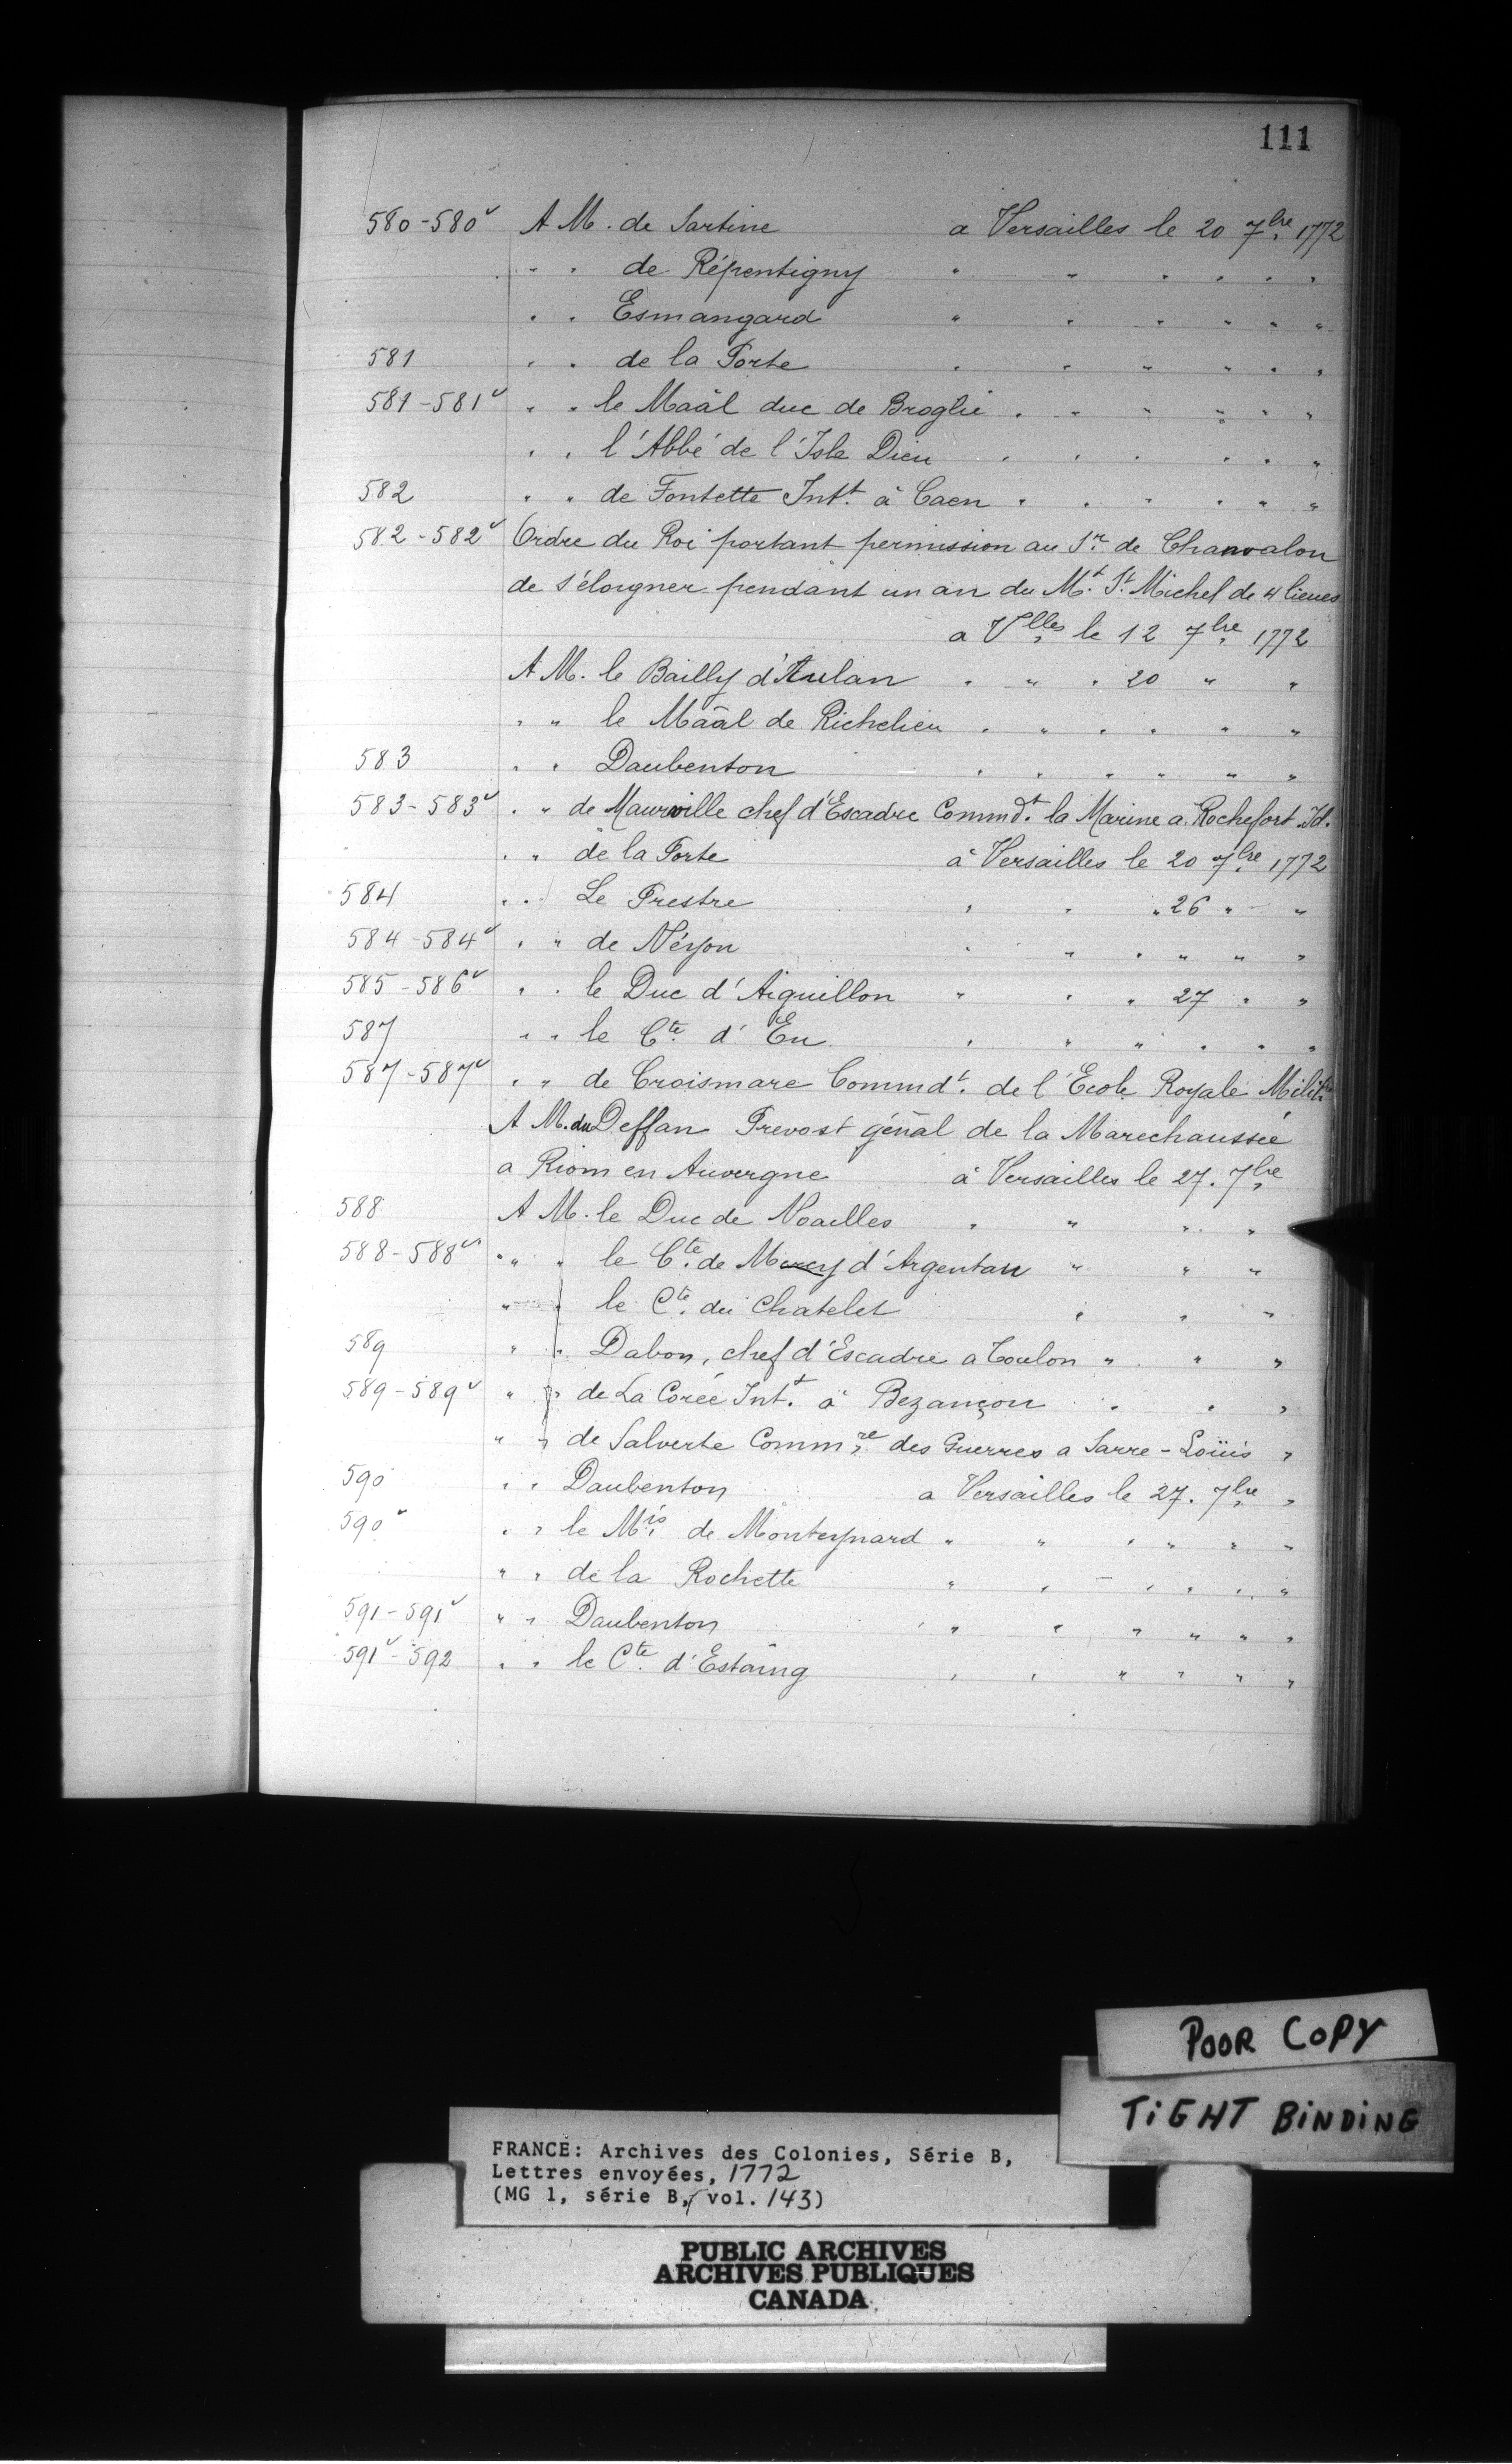 111
580-580v A M. de Sartine a Versailles le 20 7bre 1772
" " de Répentigny " " " " " "
" " Esmangard " " " " " "
581 " " de la Porte " " " " " "
581-581v " " le Maâl duc de Broglie " " " " " "
" " l'Abbé de l'Isle Dieu " " " " " "
582 " " de Fontette Intt. à Caen " " " " " "
582-582v Ordre du Roi portant permission au Sr. de Chanvalon
de s'éloigner pendant un an du Mt. St. Michel de 4 lieues
a Vlles le 12 7bre 1772
A M. le Bailly d'Aulan " " " 20 " "
" " le Maâl de Richelieu " " " " " "
583 " " Daubenton " " " " " "
583-583v " " de Maurville chef d'Escadre Commdt. la Marine a Rochefort Id.
" " de la Porte à Versailles le 20 7bre 1772
584 " " Le Prestre " " " 26 " "
584-584v " " de Néyon " " " " " "
585-586v " " le Duc d'Aiguillon " " " 27 " "
587 " " le Cte. d'Eu " " " " " "
587-587v " " de Croismare Commdt. de l'Ecole Royale Milite.
A M. du Deffan Prevost génal de la Marechaussée
a Riom en Auvergne à Versailles le 27. 7bre
588 A M. le Duc de Noailles " " " "
588-588v " " " le Cte. de Mercy d'Argentau " " "
" " le Cte. du Chatelet " " "
589 " " Dabon, chef d'Escadre a Toulon " " "
589-589v " " de La Corée Intt. à Bezançon " " "
" " de Salverte Commre. des Guerres a Sarre-Loüis "
590 " " Daubenton a Versailles le 27. 7bre "
590v " " le Mis. de Monteynard " " " " " "
" " de la Rochette " " " " " "
591-591v " " Daubenton " " " " " "
591v-592 " " le Cte. d'Estaing " " " " " "
POOR COPY
TIGHT BINDING
FRANCE: Archives des Colonies, Série B,
Lettres envoyées, 1772
(MG 1, série B, vol. 143)
PUBLIC ARCHIVES
ARCHIVES PUBLIQUES
CANADA